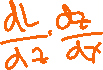 dL/dz · dz/dx